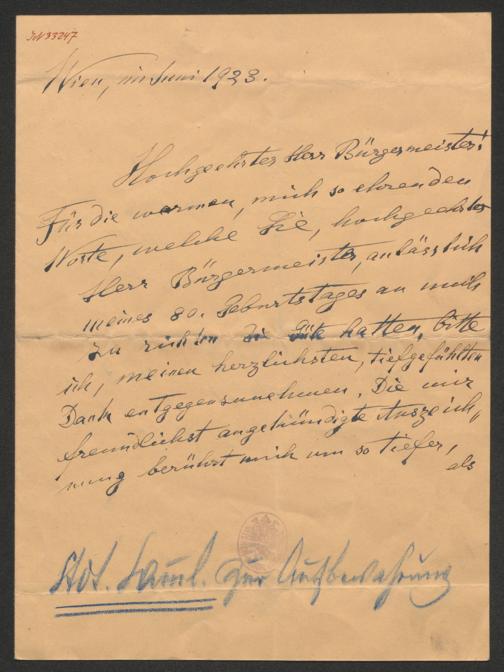 JN 33247
Wien, im Juni 1923.
Hochgeehrter Herr Bürgermeister!
Für die warmen, mich so ehrenden
Worte, welche Sie, hochgeehrter
Herr Bürgermeister, anlässlich
meines 80. Geburtstages an mich
zu richten die Güte hatten, bitte
ich, meinen herzlichsten, tiefgefühlten
Dank entgegenzunehmen. Die mir
freundlichst angekündigte Auszeich„
nung berührt mich um so tiefer,
als
Hdt. Samml. zur Aufbewahrung